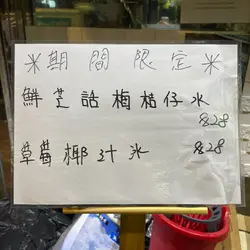 ※期間限定※
鮮芒話梅桔仔冰
$28
草莓椰汁冰 $28